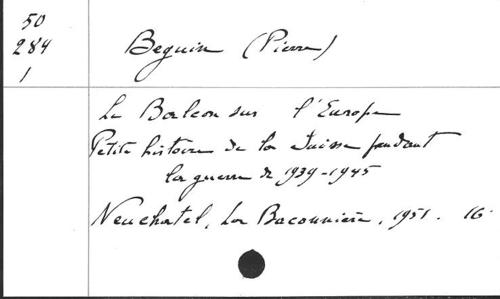 50
284
1
Beguin (Pierre)
Le Balcon sur l'Europe
Petite histoire de la Suisse pendant
la guerre de 1939-1945
Neuchatel, La Baconnière, 1951. 16°